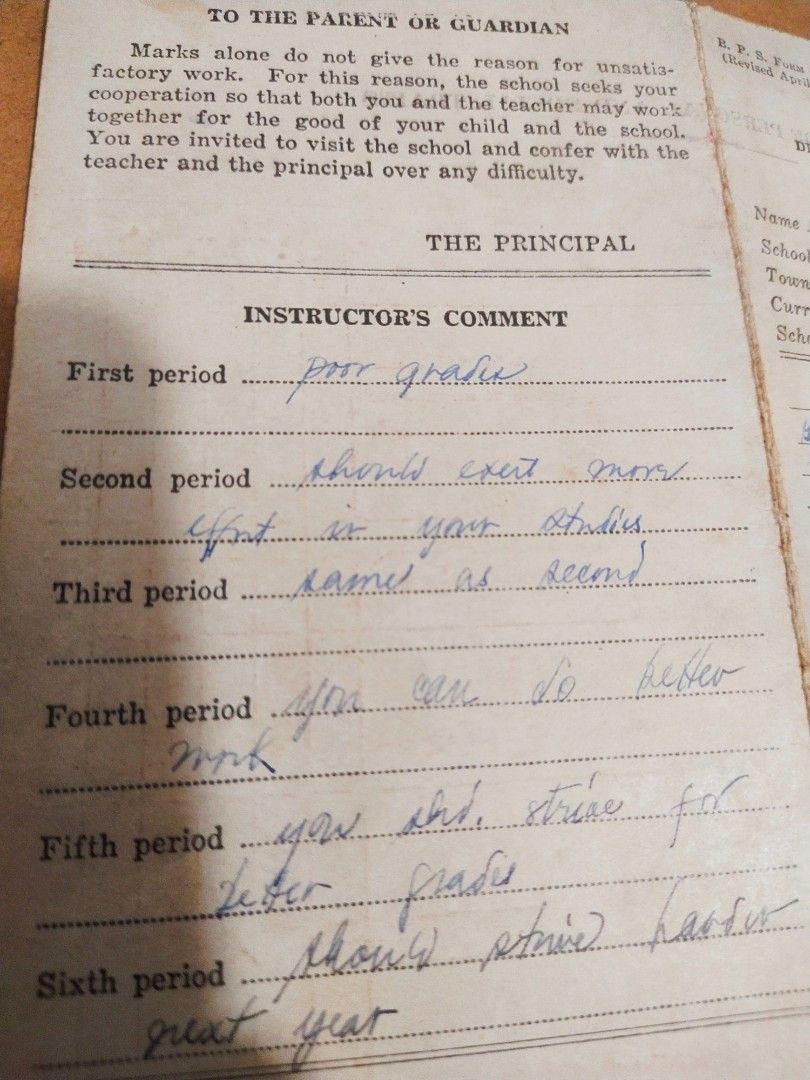 TO THE PARENT OR GUARDIAN
Marks alone do not give the reason for unsatis-
factory work. For this reason, the school seeks your
cooperation so that both you and the teacher may work
together for the good of your child and the school.
You are invited to visit the school and confer with the
teacher and the principal over any difficulty.
THE PRINCIPAL
INSTRUCTOR'S COMMENT
First period poor grades
Second period should exert more
effort in your studies
Third period same as second
Fourth period you can do better
work
Fifth period you shd. strive for
better grades
Sixth period should strive harder
next year
B. P. S. FORM
(Revised April
Name
School
Town